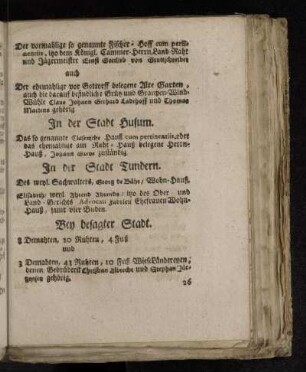 Der vormahlige so genannte Fischer-Hoff cum perti-
nentiis, itzo dem Königl. Cammer-Herrn, Land-Raht
und Jägermeister
auch
Der ehemahlige vor Gottorff belegene Alte Garten,
auch die darauf befindliche Grütz und Graupen-Wind-
Mühle Claus Johann Gerhard und Thomas
gehörig
In der Stadt Husum.
Das so genannte Hauß cum pertinentiis, oder
das ehemahlige am Raht-Hauß belegene Herrn-
Hauß, Johann zuständig
In der Stadt Tundern.
Des weyl. Sachwalters, Georg de Wohn-Hauß.
weyl. itzo des Ober und
Land-Gerichts Advocati Ehefrauen Wohn-
Hauß, samt vier Buden.
Bey besagter Stadt.
3 Demahten, 20 Ruhten, 4 Fuß
und
3 Demahten, 43 Ruhten, 10 Fuß Wiesländereyen,
denen Gebrüdern Christian und Stephan
gehörig.
26